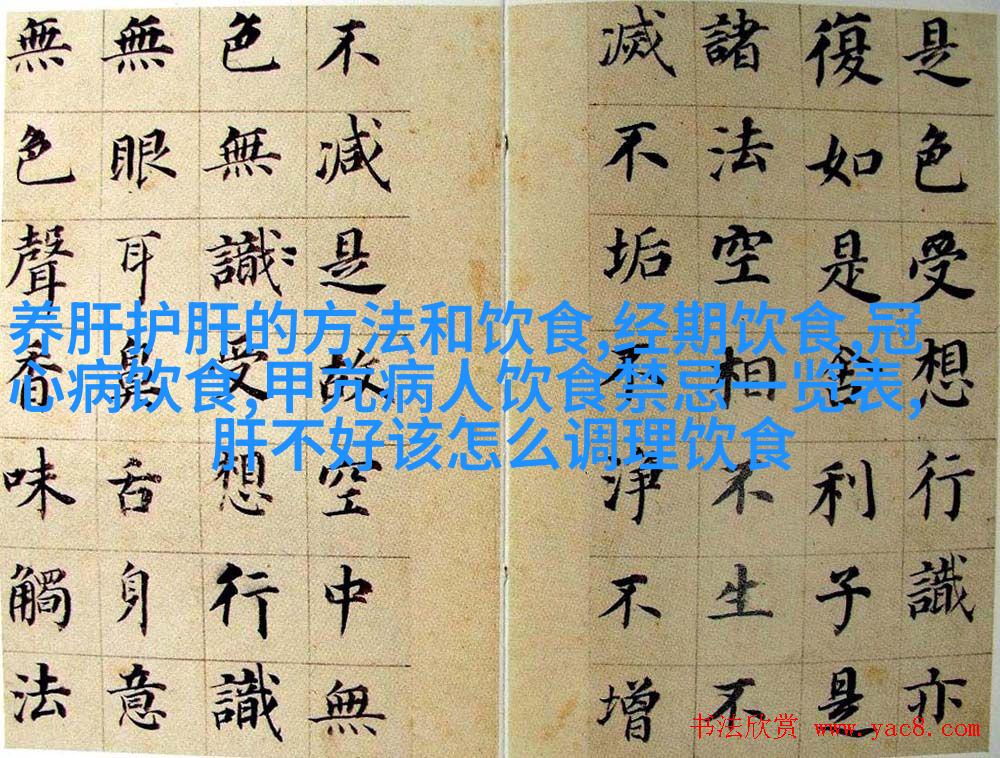 是色受想行識亦
復如是舍利子是
諸法空相不生不
滅不垢不淨不增
不減是故空中無
色無識受想行識
無眼耳鼻舌身意
無色聲香味觸法
养肝护肝的方法和饮食,经期饮食,冠
心病饮食,甲亢病人饮食禁忌一览表,
肝不好该怎么调理饮食
书法欣赏 www.yac8.com